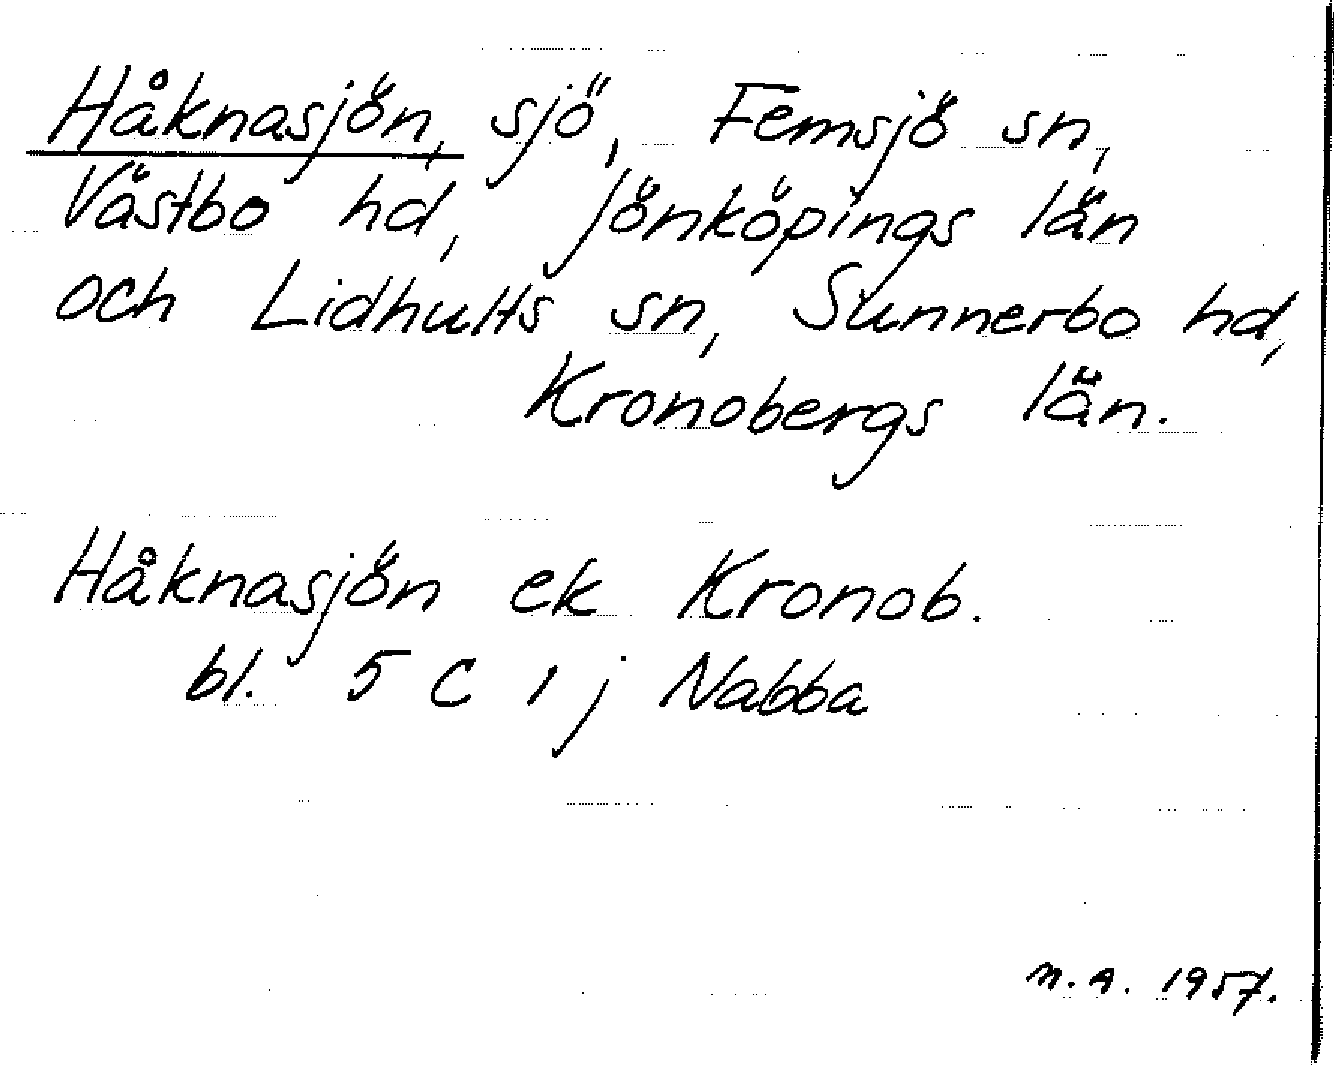 Håknasjön, sjö, Femsjö sn,
Västbo hd, Jönköpings län
och Lidhults sn, Sunnerbo hd,
Kronobergs län.
Håknasjön ek Kronob.
bl. 5 C 1 j Nabba
M.A. 1957.